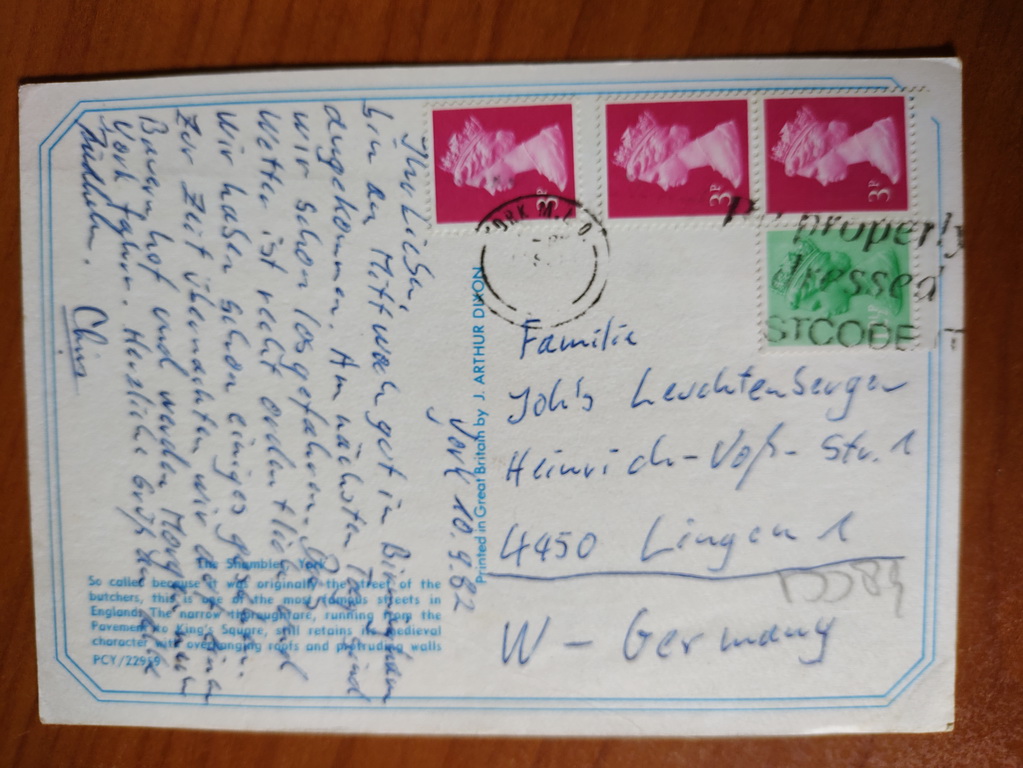 York 10.9.82
Ihr Lieben,
bin am Mittwoch gut in Birmingham
angekommen. Am nächsten Tag sind
wir schon losgefahren. Das
Wetter ist recht ordentlich und
wir haben schon einiges gesehen.
Zur Zeit übernachten wir auf einem
Bauernhof und werden Morgen nach
York fahren. Herzliche Grüße an alle
3P
3P
3P
YORK M.L.O.
properly
STCODE IT
Familie
Joh's Leuchtenberger
Heinrich-Voß-Str. 1
4450 Lingen 1
W-Germany
Printed in Great Britain by J. ARTHUR DIXON
The Shambles, York
So called because it was originally the street of the
butchers, this is one of the most famous streets in
England. The narrow thoroughfare, running from the
Pavement to King's Square, still retains its medieval
character with overhanging roofs and protruding walls
PCY/22959